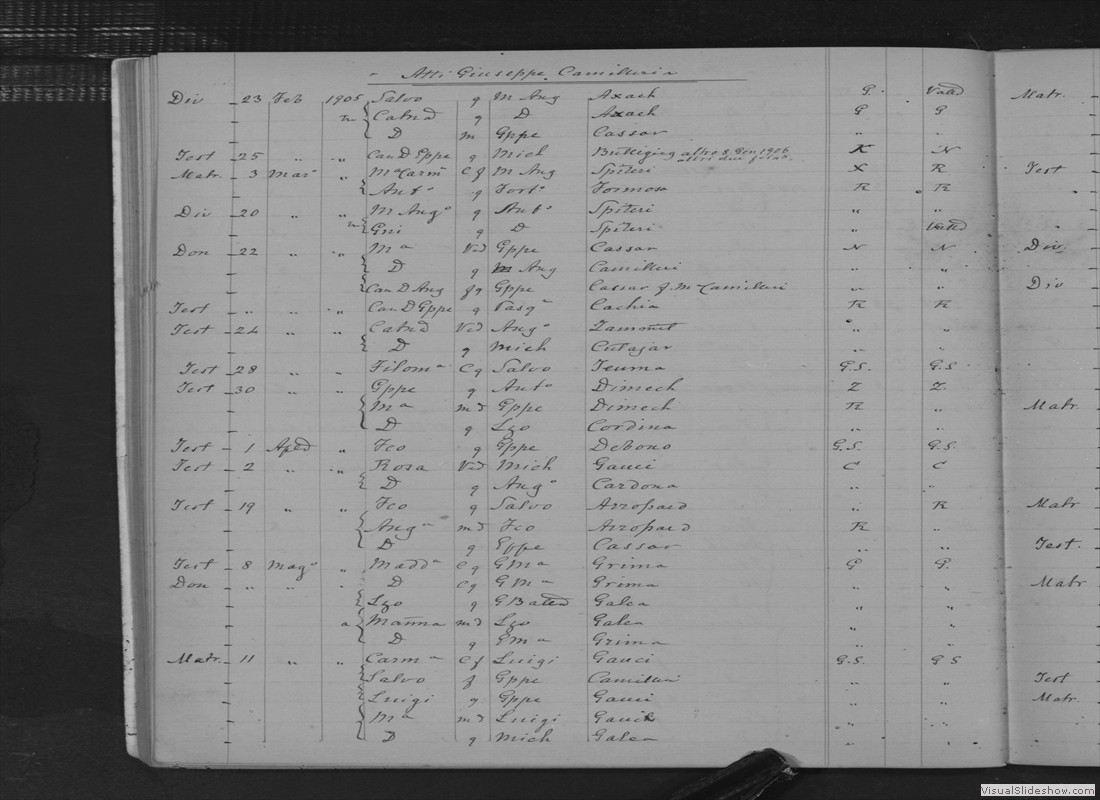 Atti Giuseppe Camilleri
Div 23 Feb 1905 Salvo q M Ang Axach G. Matr.
Catnd q D Axach G G
D m Gppe Cassar " "
Test 25 " " Can D Gppe q Mich Buttigieg altro 8 Gen 1906 K N
altri due
Matr. 3 Mar " Ma Carmª C f M Ang Spiteri X R Test
Antº q Fortº Formosa R R
Div 20 " " M Angº q Antº Spiteri " "
Gni q D Spiteri "
Don 22 " " Mª Ved Gppe Cassar N N Div
D q M Ang Camilleri " "
Can D Ang fq Gppe Cassar f Mª Camilleri " " Div
Test " " " Can D Gppe q Pasqª Cachia R R
Test 24 " " Catnd Ved Angº Zammit " "
D q Mich Cutajar " "
Test 28 " " Filomª Cq Salvo Teuma G.S. G.S
Test 30 " " Gppe q Antº Dimech Z Z.
Mª md Gppe Dimech R " Matr.
D q Lzo Cordina " "
Test 1 " Fco q Gppe Debono G.S. G.S.
Test 2 " " Rosa Ved Mich Gauci C C
D q Angº Cardona " "
Test 19 " " Fco q Salvo Azzopard " R Matr
Angª md Fco Azzopard R "
D q Gppe Cassar " " Test.
Test 8 Magº " Maddª Cq GMª Grima G G.
Don " " " D Cq GMª Grima " " Matr
Lzo q G Batta Galea " "
a Marina md Lzo Galea " "
D q GMª Grima " "
Matr. 11 " " Carmª Cf Luigi Gauci G.S. G S
Salvo f Gppe Camilleri " " Test
Luigi q Gppe Gauci " " Matr.
Mª md Luigi Gauci " "
D q Mich Galea " "
VisualSlideshow.com